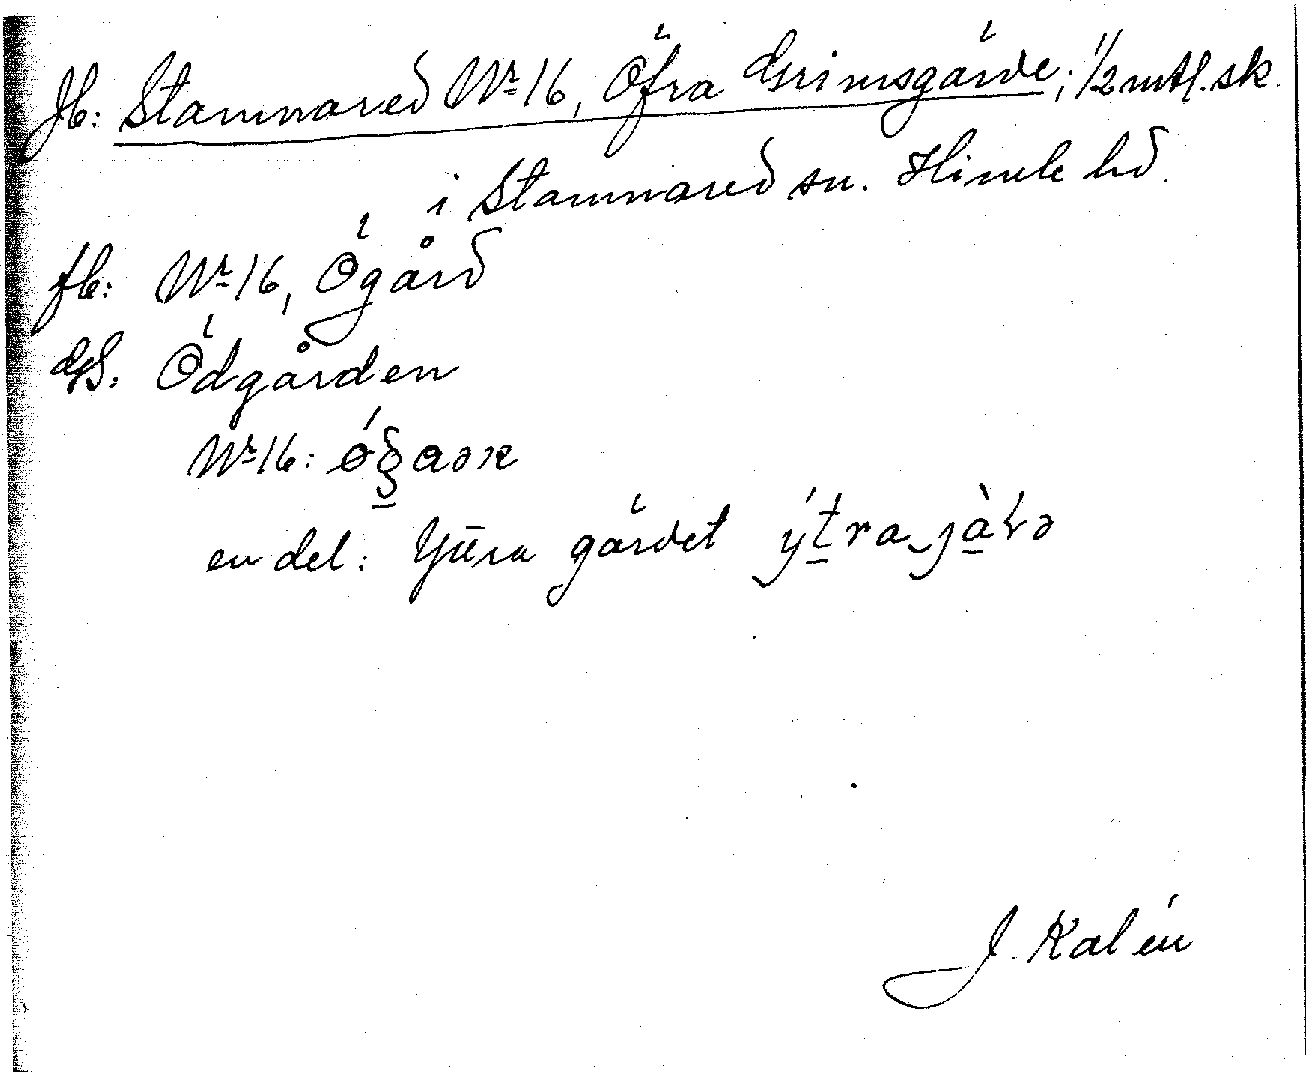 Jb: Stamnared Nr 16, Öfra Grimsgärde; 1/2 mtl. sk.
i Stamnared sn. Himle hd.
fb: Nr 16, Ögård
GS: Ödgården
Nr 16:
en del: Yttra gärdet
J. Kalén